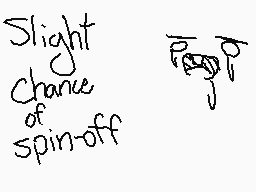 Slight
chance
of
spin-off